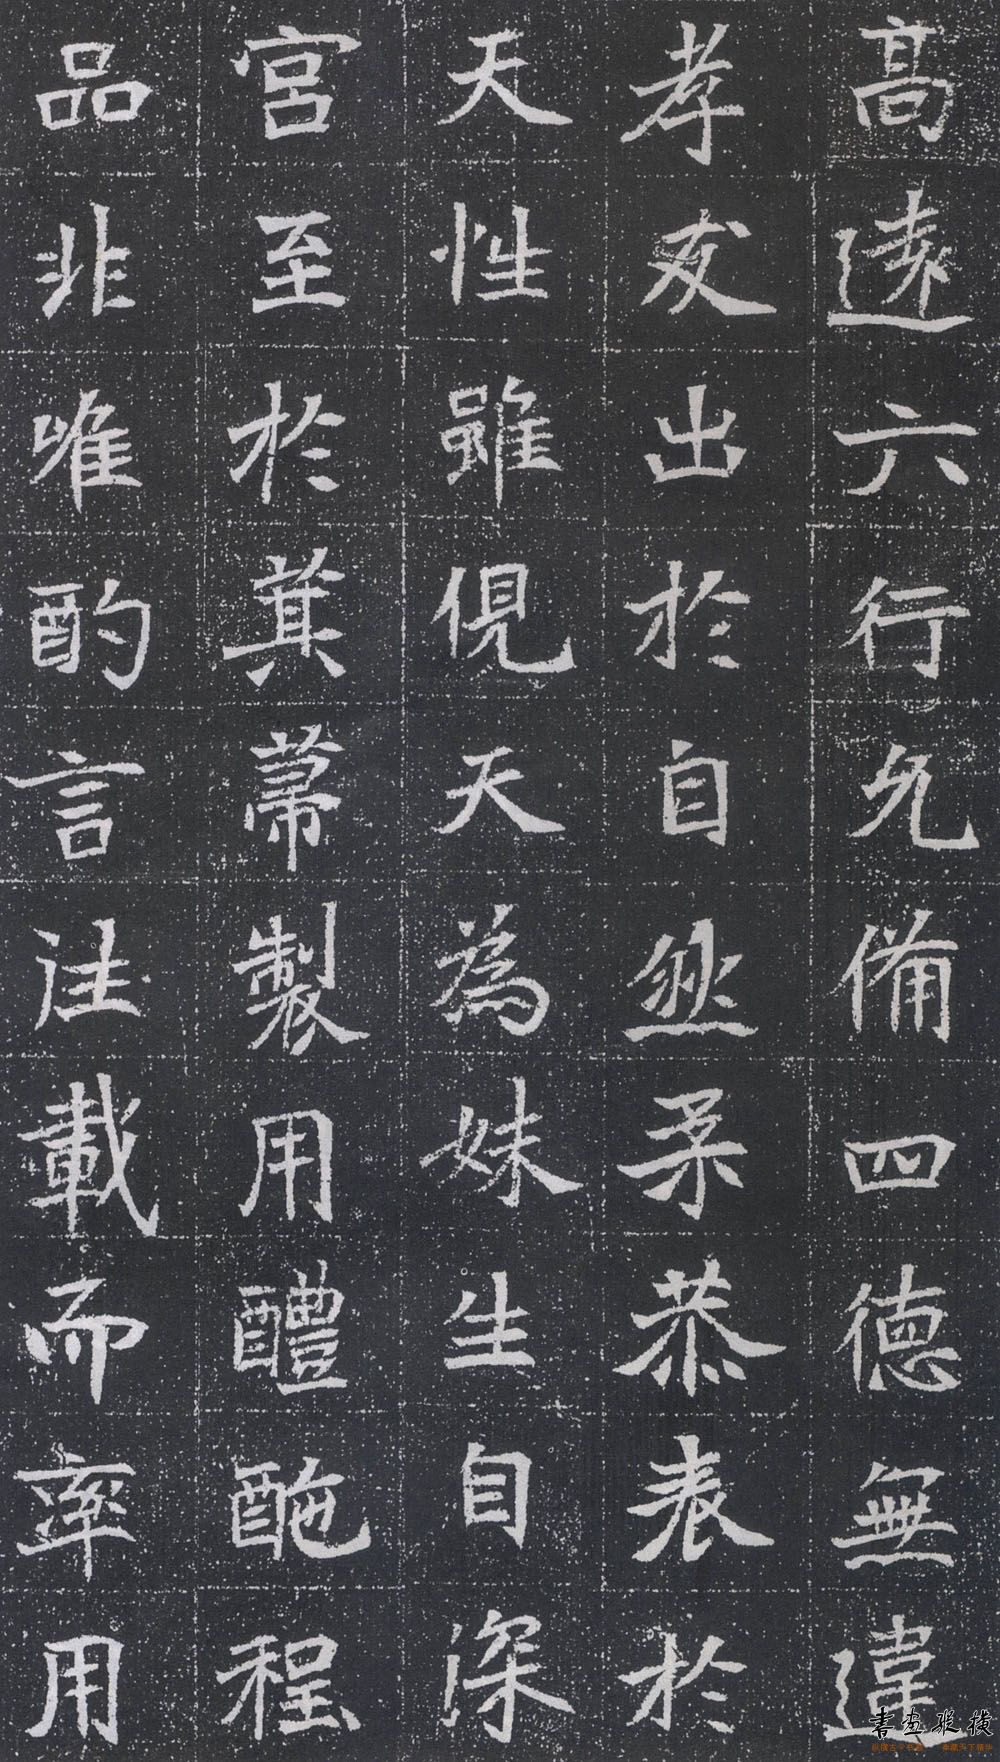 高遠六行允備四德無違
孝友出於自然柔恭表於
天性雖俔天為妹生自深
宮至於萁菷製用醴酏程
品非唯酌言往載而率用
書畫縱橫